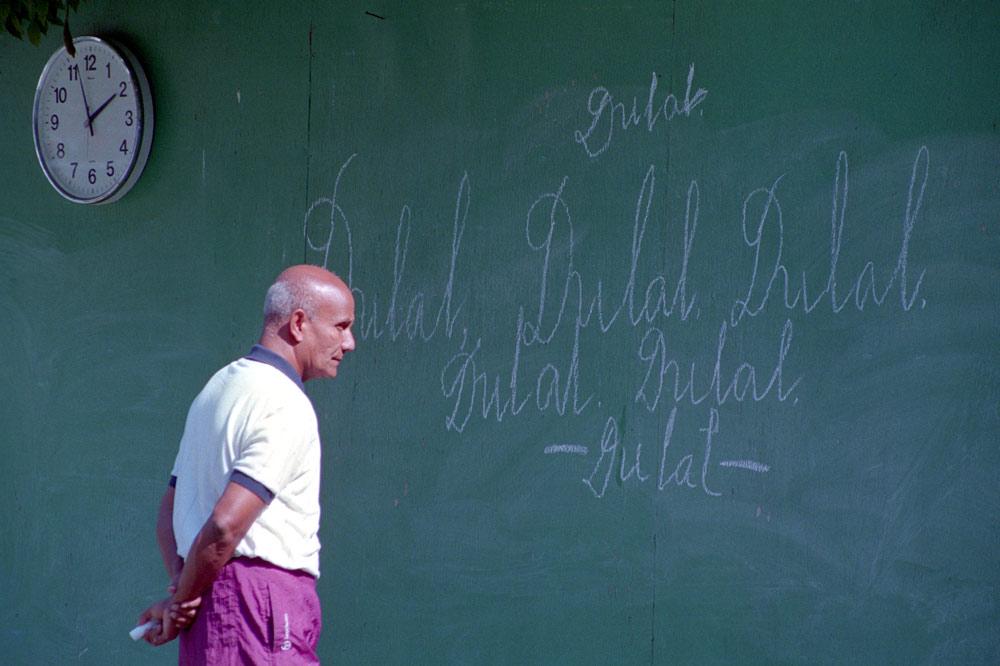 11 12 1
10 2
9 3
8 4
7 6 5
Dulal.
Dulal, Dulal. Dulal.
Dulal. Dulal.
— Dulal —